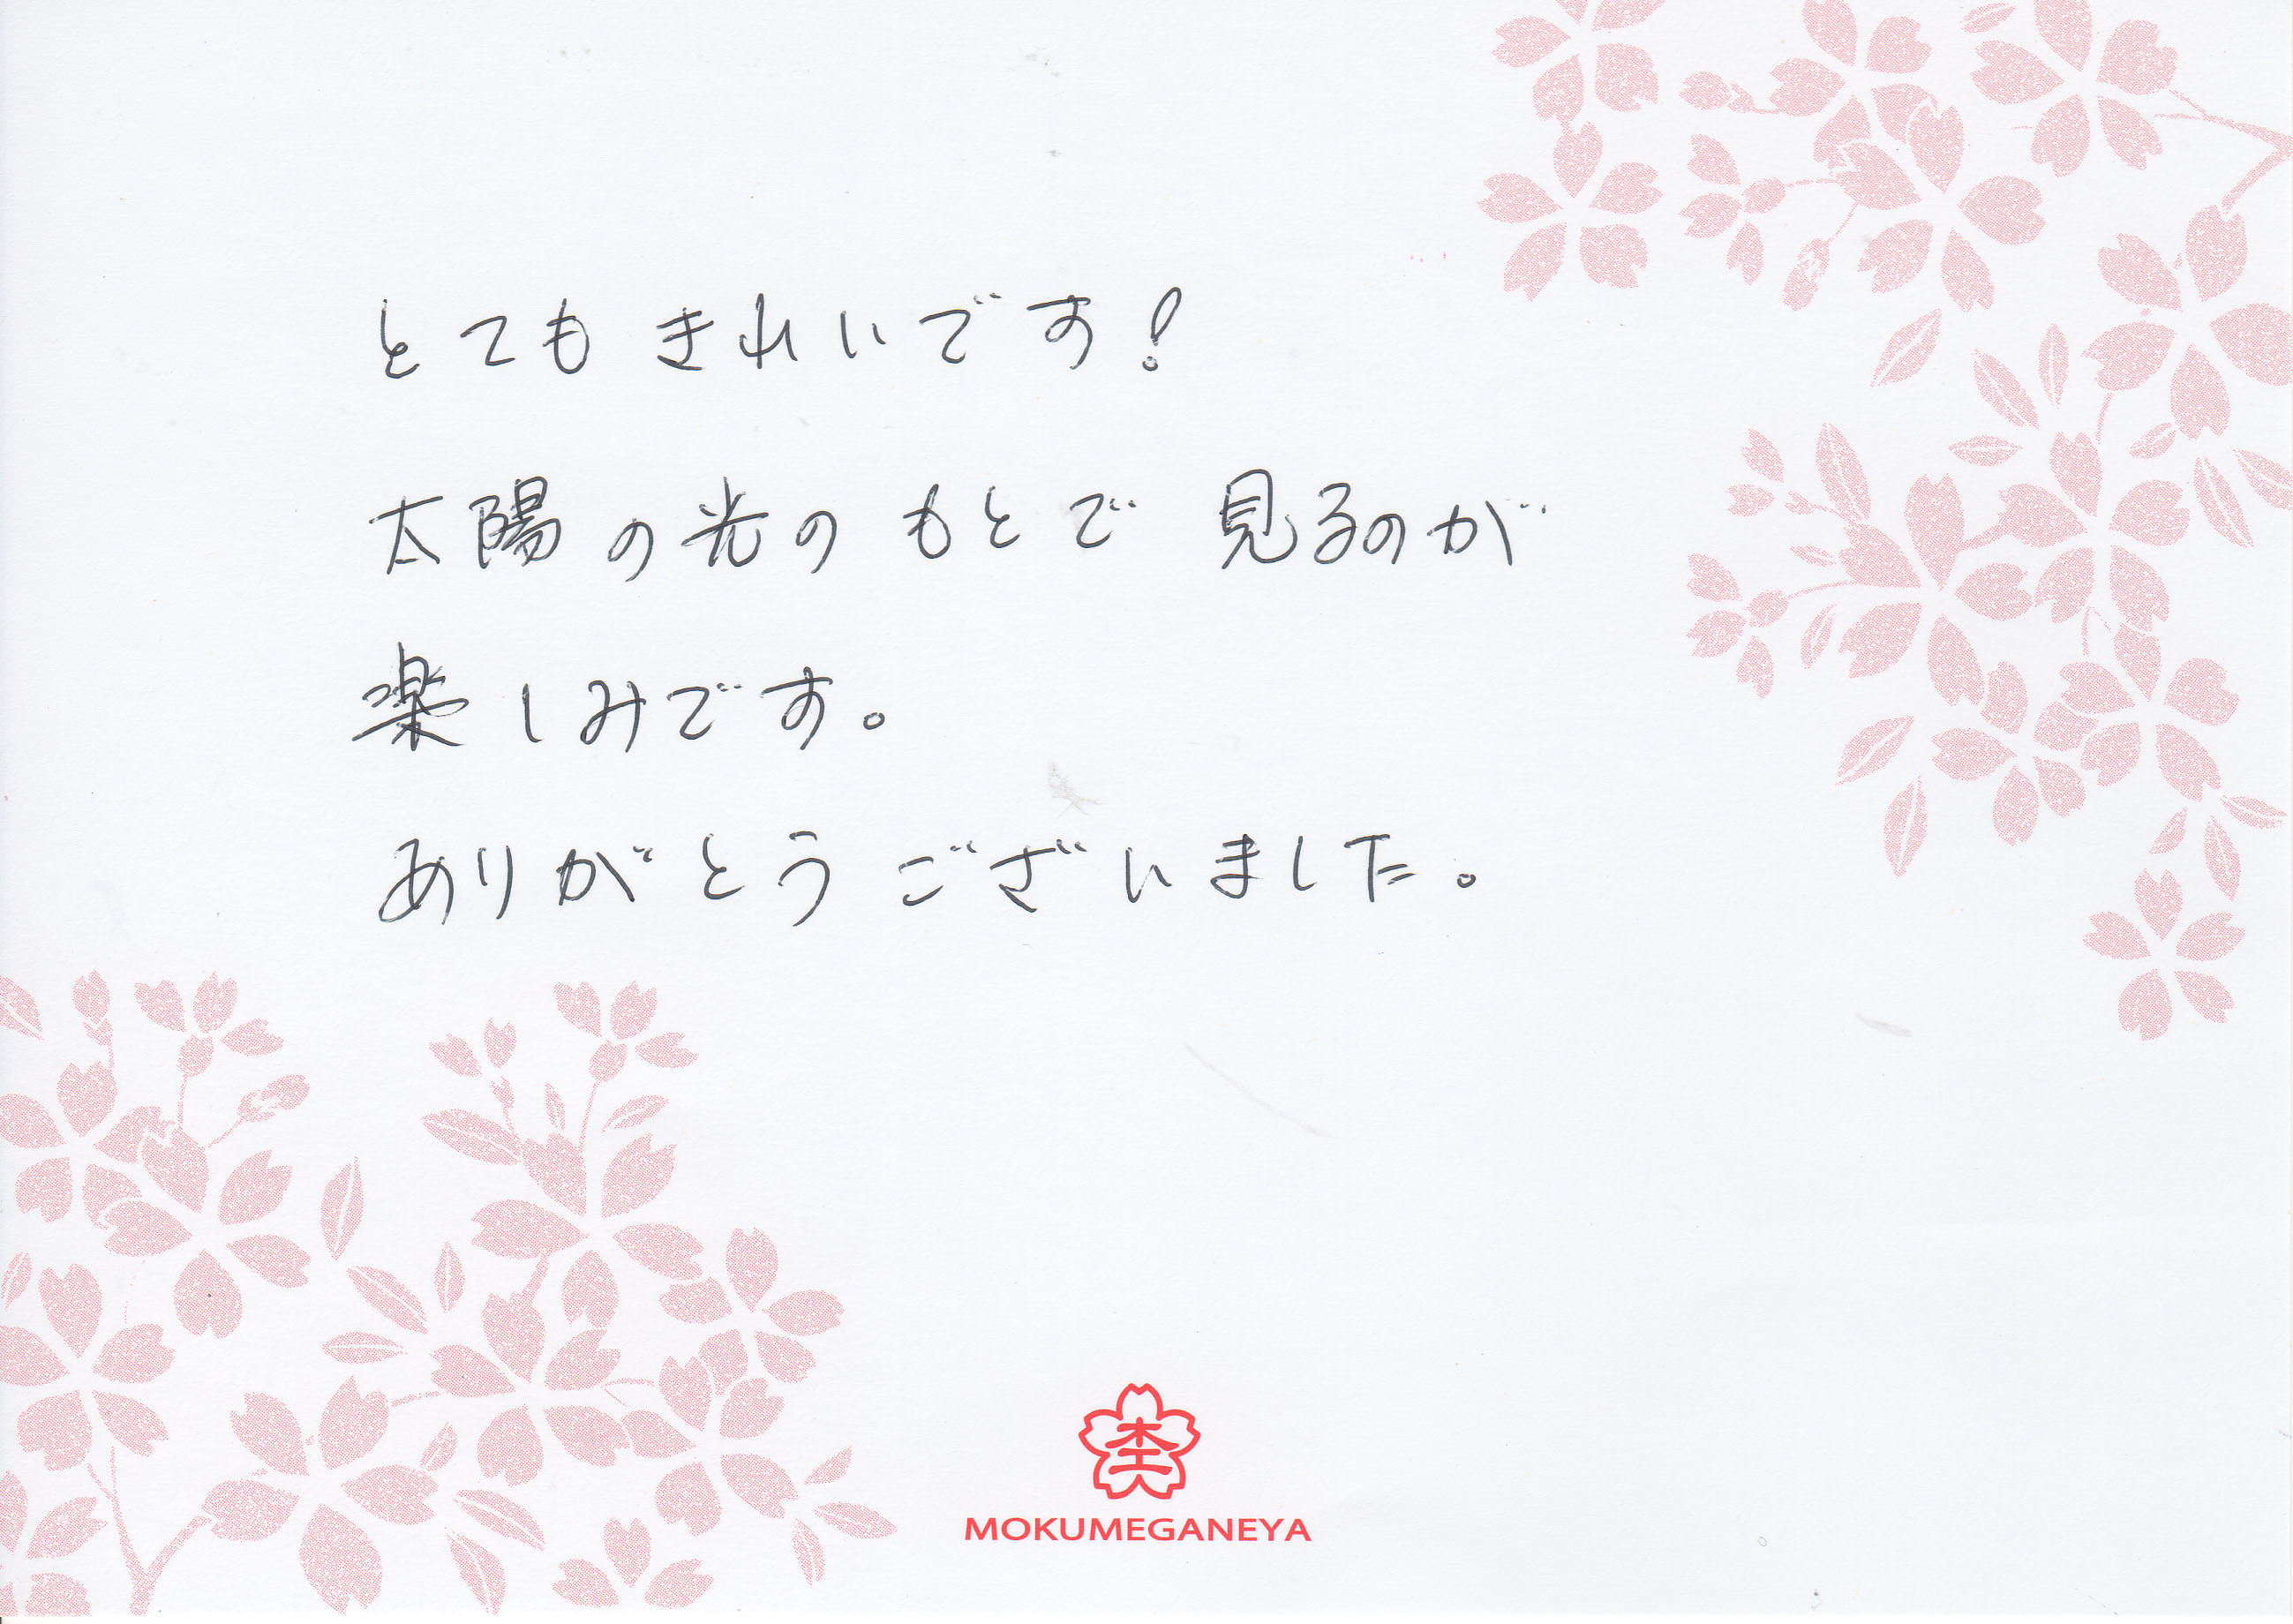 とてもきれいです！
太陽の光のもとで見るのが
楽しみです。
ありがとうございました。
MOKUMEGANEYA